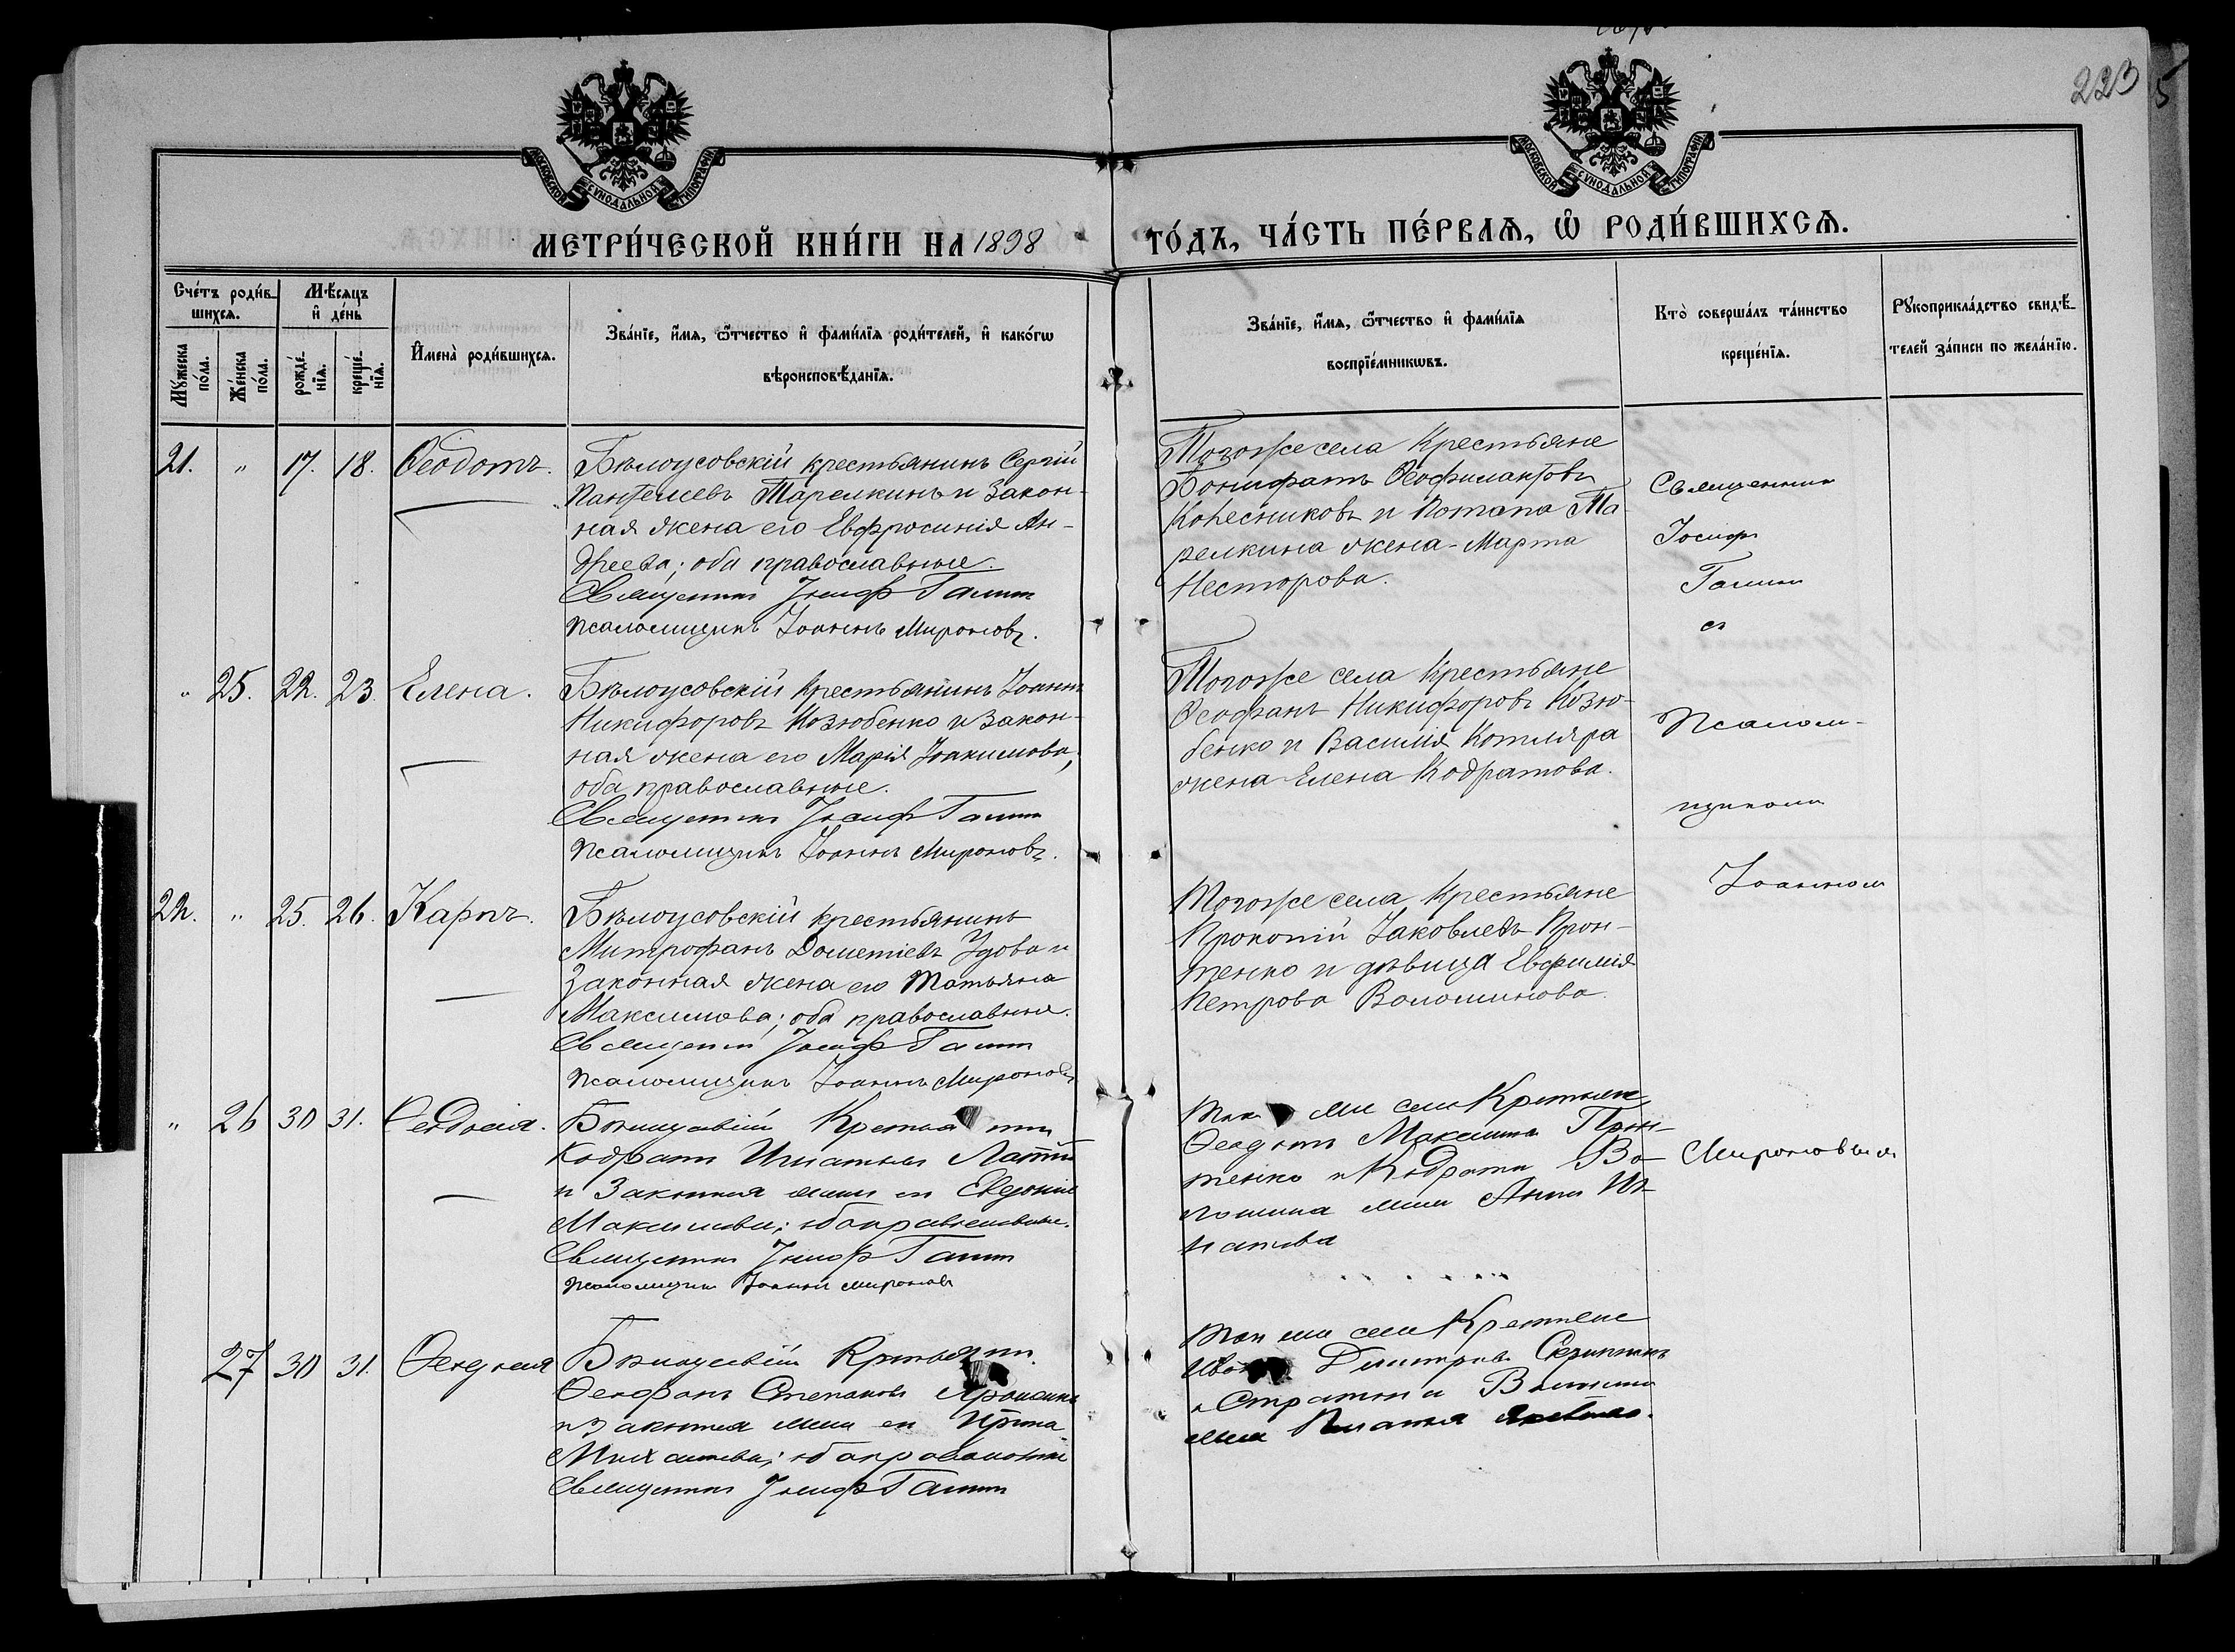 223
5
МОСКОВСКОЙ СѴНОДАЛЬНОЙ ТИПОГРАФІИ
МОСКОВСКОЙ СѴНОДАЛЬНОЙ ТИПОГРАФІИ
МЕТРИ́ЧЕСКОЙ КНИ́ГИ НА 1898 ГО́ДЪ, ЧА́СТЬ ПЕ́РВАѦ, Ѡ҆ РОДИ́ВШИХСѦ.
Сче́тъ роди́в-
шихсѧ.
Мꙋ́жеска по́ла.
Же́нска по́ла.
Мѣ́сѧцъ и҆ де́нь
рожде́-
нїѧ.
креще́-
нїѧ.
И҆мена̀ роди́вшихсѧ.
Зва́нїе, и҆́мѧ, ѻ҆́тчество и҆ фами́лїѧ роди́телей, и҆ како́гѡ
вѣроисповѣ́данїѧ.
Зва́нїе, и҆́мѧ, ѻ҆́тчество и҆ фами́лїѧ
воспрїе́мникѡвъ.
Кто̀ соверша́лъ та́инство
креще́нїѧ.
Рꙋкоприкла́дство свидѣ́-
телей за́писи по жела́нїю.
21. " 17. 18. Ѳеодотъ.
Бѣлоусовскій крестьянинъ Сергій
Пантелеевъ Тарелкинъ и закон-
ная жена его Евфросинія Ан-
дреева; оба православные.
Священникъ Іосифъ Галин
Псаломщикъ Іоаннъ Мироновъ.
Тогоже села крестьяне
Бонифатъ Ѳеофилактовъ
Колесниковъ и Потапа Та-
релкина жена - Марта
Несторова.
Священникъ
Іосифъ
Галин
съ
" 25. 22. 23. Елена.
Бѣлоусовскій крестьянинъ Іоаннъ
Никифоровъ Козюбенко и закон-
ная жена его Марія Іоакимова;
оба православные.
Священникъ Іосифъ Галин
Псаломщикъ Іоаннъ Мироновъ.
Тогоже села крестьяне
Ѳеофанъ Никифоровъ Козю-
бенко и Василія Котляра
жена Елена Кодратова.
Псалом-
щикомъ
Іоанномъ
22. " 25. 26. Карпъ.
Бѣлоусовскій крестьянинъ
Митрофанъ Дометіевъ Удова и
законная жена его Татьяна
Максимова; оба православные.
Священникъ Іосифъ Галин
Псаломщикъ Іоаннъ Мироновъ
Тогоже села крестьяне
Прокопій Іаковлевъ Прон-
тенко и дѣвица Евфимія
Петрова Волошинова.
" 26 30 31. Ѳеодосія.
Бѣлоусовскій крестьянинъ
Кодратъ Игнатьевъ
и законная жена его Евдокія
Максимова; оба православные.
Священникъ Іосифъ Галин
Псаломщикъ Іоаннъ Мироновъ
села Крестьяне
Ѳеодотъ Максимовъ Прон-
тенко и Кодрата Во-
лошина жена Анна Иг-
натова
Мироновымъ
27 30 31. Ѳеодосія
Бѣлоусовскій Крестьянинъ
Ѳеофанъ Степановъ
и законная жена его Ирина
Михайлова; оба православные
Священникъ Іосифъ Галин
села Крестьяне
Иванъ Димитріевъ
и Волошина
жена